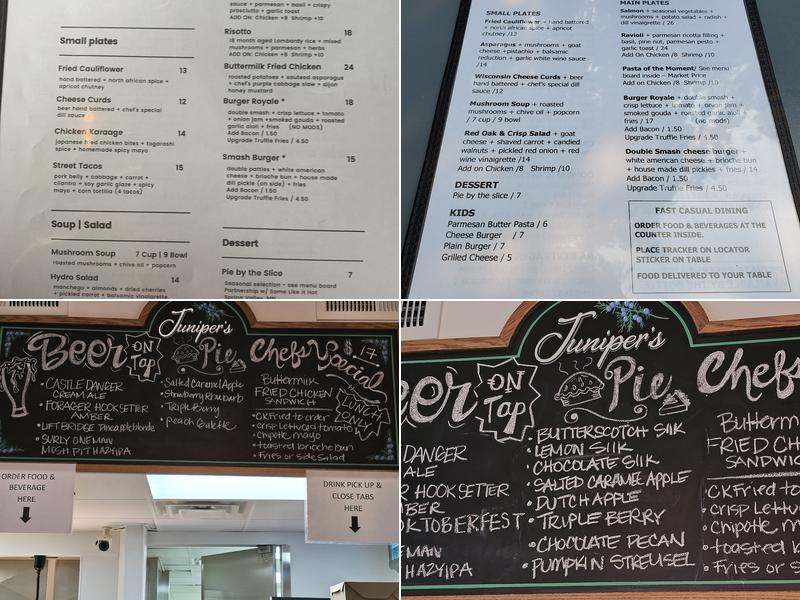 sauce + parmesan + basil + crispy
prosciutto + garlic toast
ADD ON: Chicken +8 Shrimp +10
Risotto 18
18 month aged Lombardy rice + mixed
mushrooms + parmesan + herbs
ADD ON: Chicken +8 Shrimp +10
Buttermilk Fried Chicken 24
roasted potatoes + sauteed asparagus
+ chef's purple cabbage slaw + dijon
honey mustard
Burger Royale * 18
double smash + crisp lettuce + tomato
+ onion jam +smoked gouda + roasted
garlic aioli + fries (NO MODS)
Add Bacon / 1.50
Upgrade Truffle Fries / 4.50
Smash Burger * 15
double patties + white american
cheese + brioche bun + house made
dill pickle (on side) + fries
Add Bacon / 1.50
Upgrade Truffle Fries / 4.50
Dessert
Pie by the Slice 7
Seasonal selection - see menu board
Partnership w/ Some Like it Hot
Spring Valley, MN
Small plates
Fried Cauliflower 13
hand battered + north african spice +
apricot chutney
Cheese Curds 12
beer hand battered + chef's special
dill sauce
Chicken Karaage 14
japanese fried chicken bites + togarashi
spice + homemade spicy mayo
Street Tacos 15
pork belly + cabbage + carrot +
cilantro + soy garlic glaze + spicy
mayo + corn tortilla (4 tacos)
Soup | Salad
Mushroom Soup 7 Cup | 9 Bowl
roasted mushrooms + chive oil + popcorn
Hydro Salad 14
manchego + almonds + dried cherries
+ pickled carrot + balsamic vinaigrette
SMALL PLATES
Fried Cauliflower + hand battered
+ north african spice + apricot
chutney /13
Asparagus + mushrooms + goat
cheese + pistachio + balsamic
reduction + garlic white wine sauce
/14
Wisconsin Cheese Curds + beer
hand battered + chef's special dill
sauce /12
Mushroom Soup + roasted
mushrooms + chive oil + popcorn
/ 7 cup / 9 bowl
Red Oak & Crisp Salad + goat
cheese + shaved carrot + candied
walnuts + pickled red onion + red
wine vinaigrette /14
Add on Chicken /8 Shrimp /10
DESSERT
Pie by the slice / 7
KIDS
Parmesan Butter Pasta / 6
Cheese Burger / 7
Plain Burger / 7
Grilled Cheese / 5
MAIN PLATES
Salmon + seasonal vegetables +
mushrooms + potato salad + radish +
dill vinaigrette / 26
Ravioli + parmesan ricotta filling +
basil, pine nut, parmesan pesto +
garlic toast / 24
Add On Chicken /8 Shrimp /10
Pasta of the Moment/ See menu
board inside - Market Price
Add on Chicken /8 Shrimp /10
Burger Royale + double smash +
crisp lettuce + tomato + onion jam +
smoked gouda + roasted garlic aioli +
fries / 17 (no mods)
Add Bacon / 1.50
Upgrade Truffle Fries / 4.50
Double Smash cheese burger +
white american cheese + brioche bun
+ house made dill pickles + fries / 14
Add Bacon / 1.50
Upgrade Truffle Fries / 4.50
FAST CASUAL DINING
ORDER FOOD & BEVERAGES AT THE
COUNTER INSIDE.
PLACE TRACKER ON LOCATOR
STICKER ON TABLE
FOOD DELIVERED TO YOUR TABLE
Juniper's
Beer ON Tap
• CASTLE DANGER
CREAM ALE
• FORAGER HOOKSETTER
AMBER
• LIFT BRIDGE Pineapple blonde
• SURLY ONE MAN
MOSH PIT HAZY IPA
Pie
• Salted Caramel Apple
• Strawberry Rhubarb
• Triple Berry
• Peach Galette
Chefs Special $17
Buttermilk
FRIED CHICKEN
SANDWICH
LUNCH ONLY
• CK Fried to order
• crisp Lettuce & tomato
• Chipotle mayo
• toasted brioche bun
• Fries or side Salad
ORDER FOOD &
BEVERAGE
HERE
DRINK PICK UP &
CLOSE TABS
HERE
Juniper's
eer ON Tap
DANGER
ALE
R HOOKSETTER
BER
OKTOBERFEST
EMAN
HAZY IPA
Pie
• BUTTERSCOTCH SILK
• LEMON SILK
• CHOCOLATE SILK
• SALTED CARAMEL APPLE
• DUTCH APPLE
• TRIPLE BERRY
• CHOCOLATE PECAN
• PUMPKIN STREUSEL
Chefs
Butterm
FRIED CH
SANDWIC
• CK Fried to
• crisp Lettu
• Chipotle m
• toasted b
• Fries or s